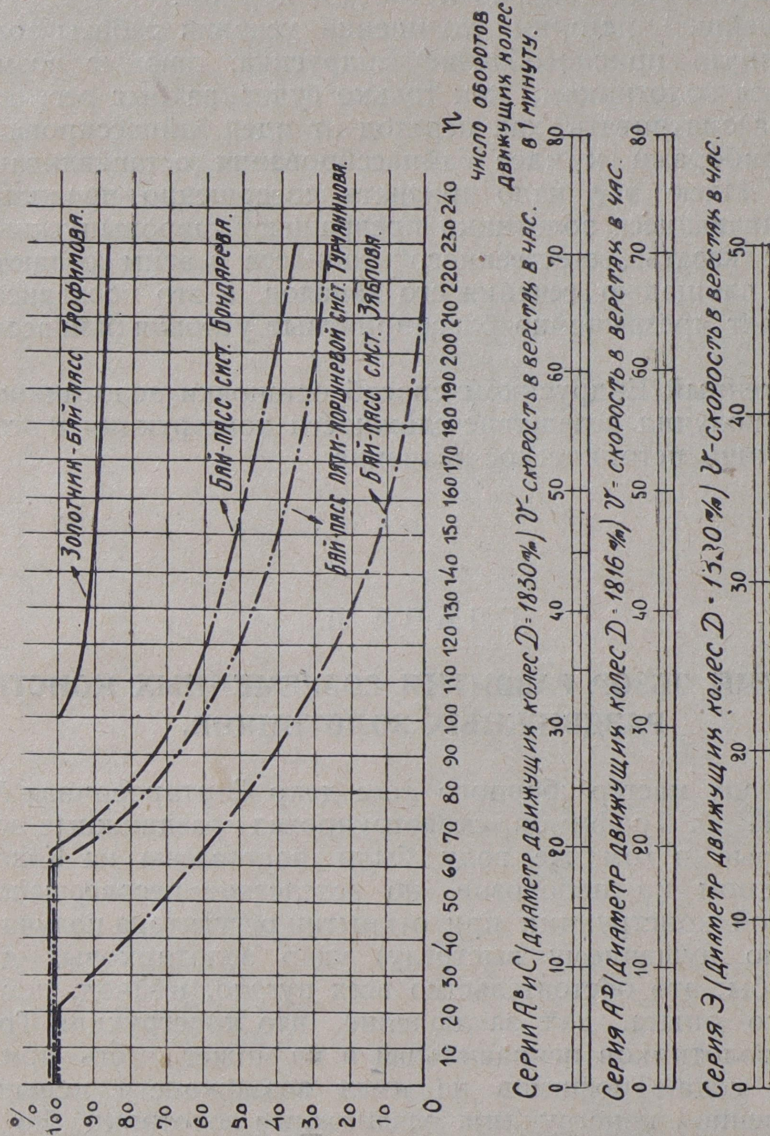 %
100
90
80
70
60
50
40
30
20
10
0
Золотник-бай-пасс Трофимова.
Бай-пасс сист. Бондарева.
Бай-пасс пяти-поршневой сист. Турчанинова.
Бай-пасс сист. Зяблова.
10 20 30 40 50 60 70 80 90 100 110 120 130 140 150 160 170 180 190 200 210 220 230 240
n
число оборотов
движущих колес
в 1 минуту.
Серии Аᴮ и С (диаметр движущих колес D=1830 м/м) V-скорость в верстах в час.
0 10 20 30 40 50 60 70 80
Серия Аᴰ (диаметр движущих колес D=1816 м/м) V=скорость в верстах в час.
0 10 20 30 40 50 60 70 80
Серия Э (диаметр движущих колес D=1320 м/м) V-скорость в верстах в час.
0 10 20 30 40 50